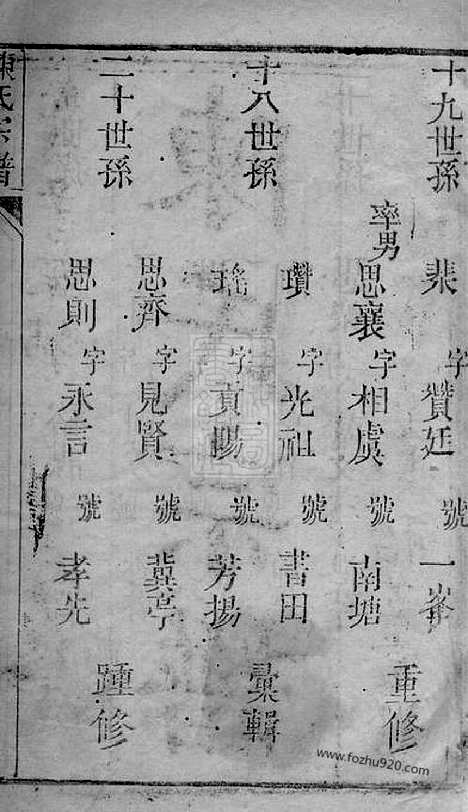 十九世孫 棐 字 贊廷 號 一峯
率男 思襄 字 相虞 號 南塘 重修
瓚 字 光祖 號 書田
十八世孫 瑤 字 貢賜 號 芳揚 彙輯
思齊 字 見賢 號 冀亭
二十世孫 思則 字 永言 號 孝先 踵修
陳氏宗譜
www.fozhu920.com